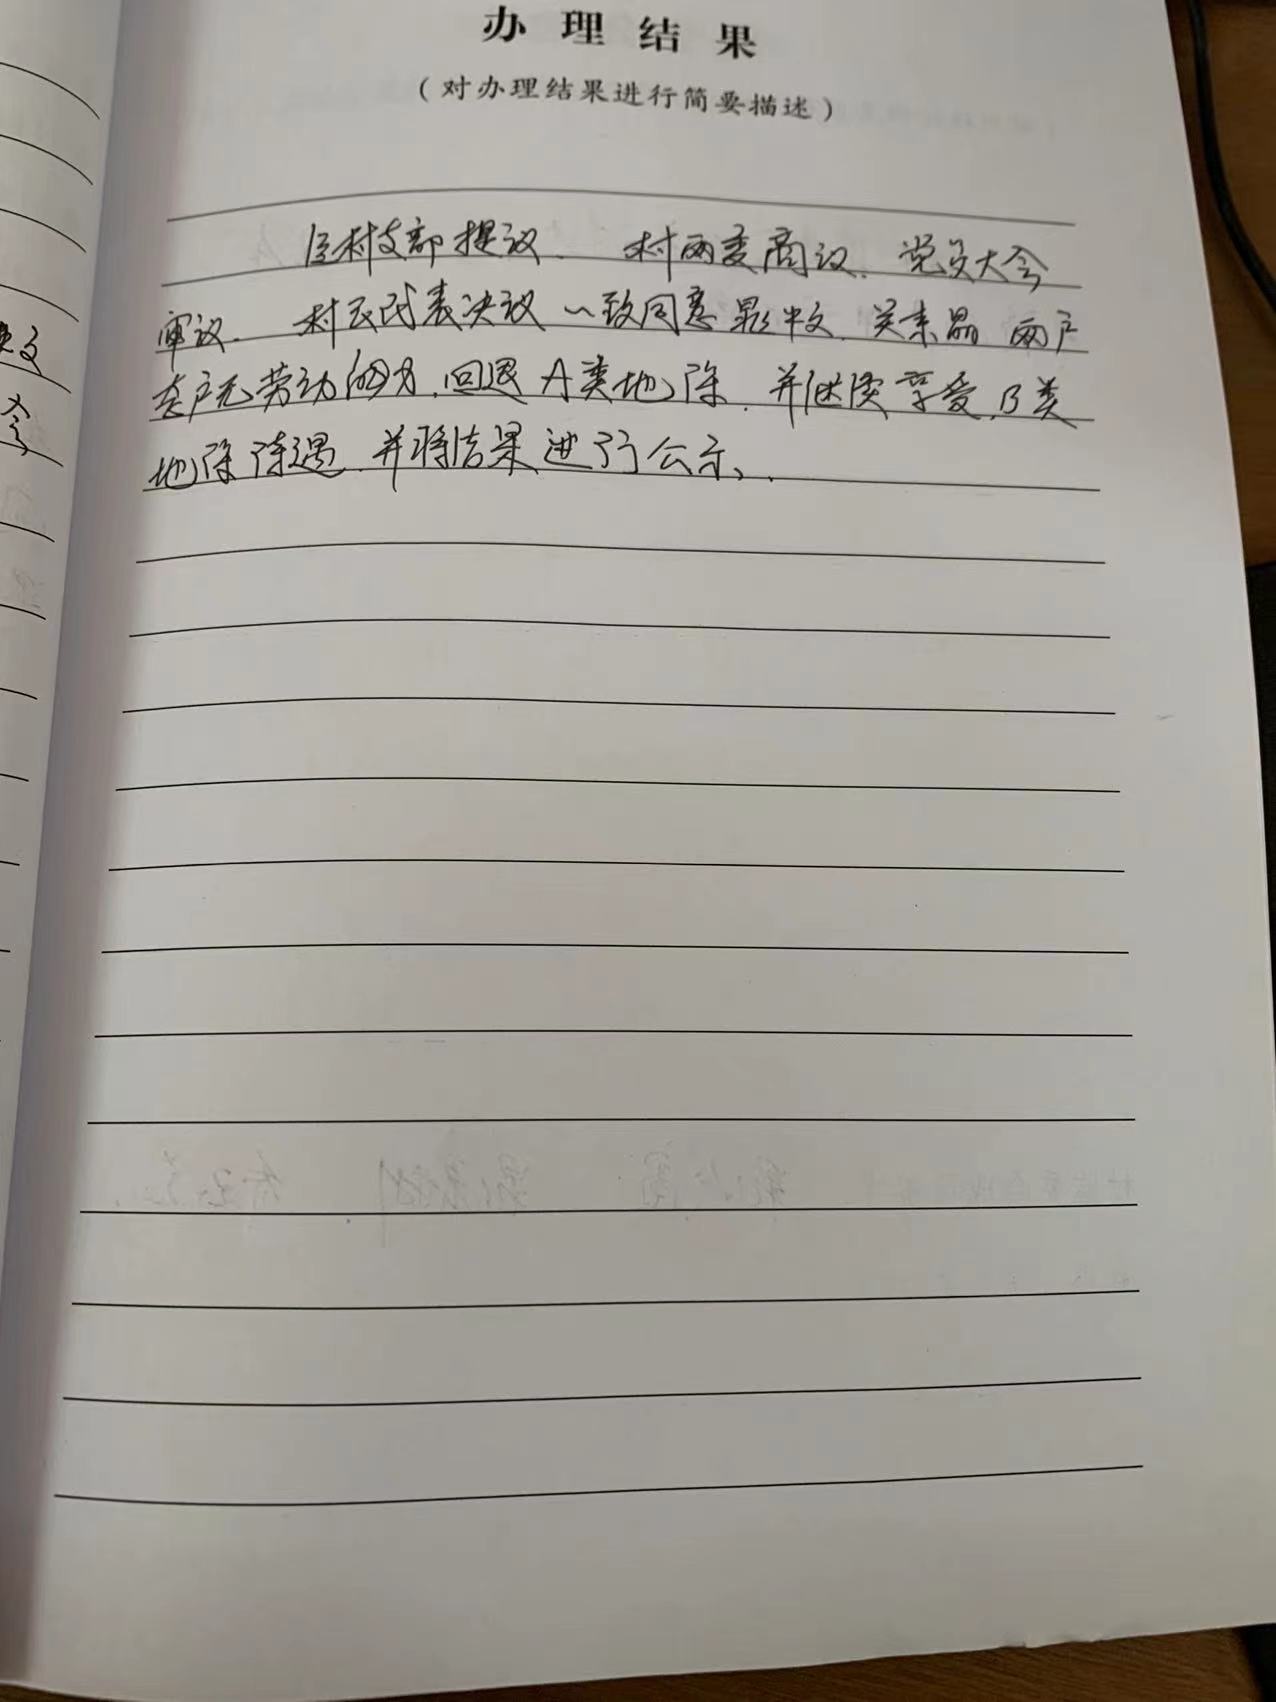 办理结果
（对办理结果进行简要描述）
经村支部提议、村两委商议、党员大会
审议、村民代表决议一致同意 中文、关素晶两户
户无劳动 力，回退A类地 ，并继续享受B类
地 待遇 并将结果进行公示、.
文
会